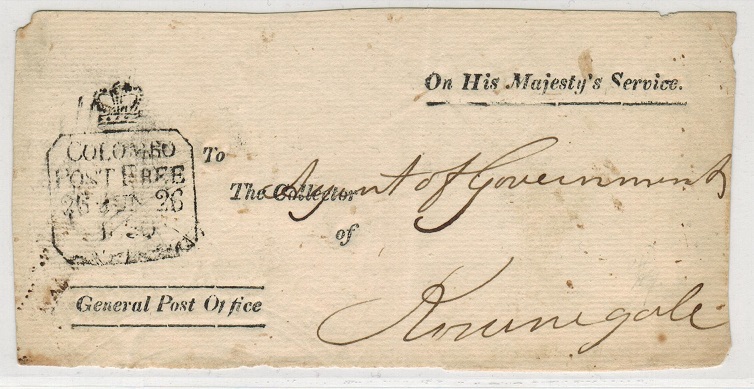 On His Majesty's Service.
COLOMBO
POST FREE
26 JUN 26
To
The Collector Agent of Government
of
General Post Office
Kornegale